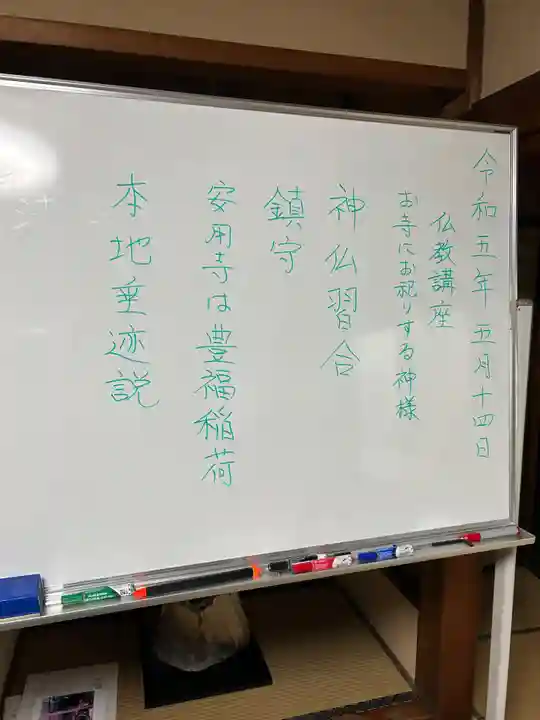 令和五年五月十四日
仏教講座
お寺にお祀りする神様
神仏習合
鎮守
安用寺は豊福稲荷
本地垂迹説